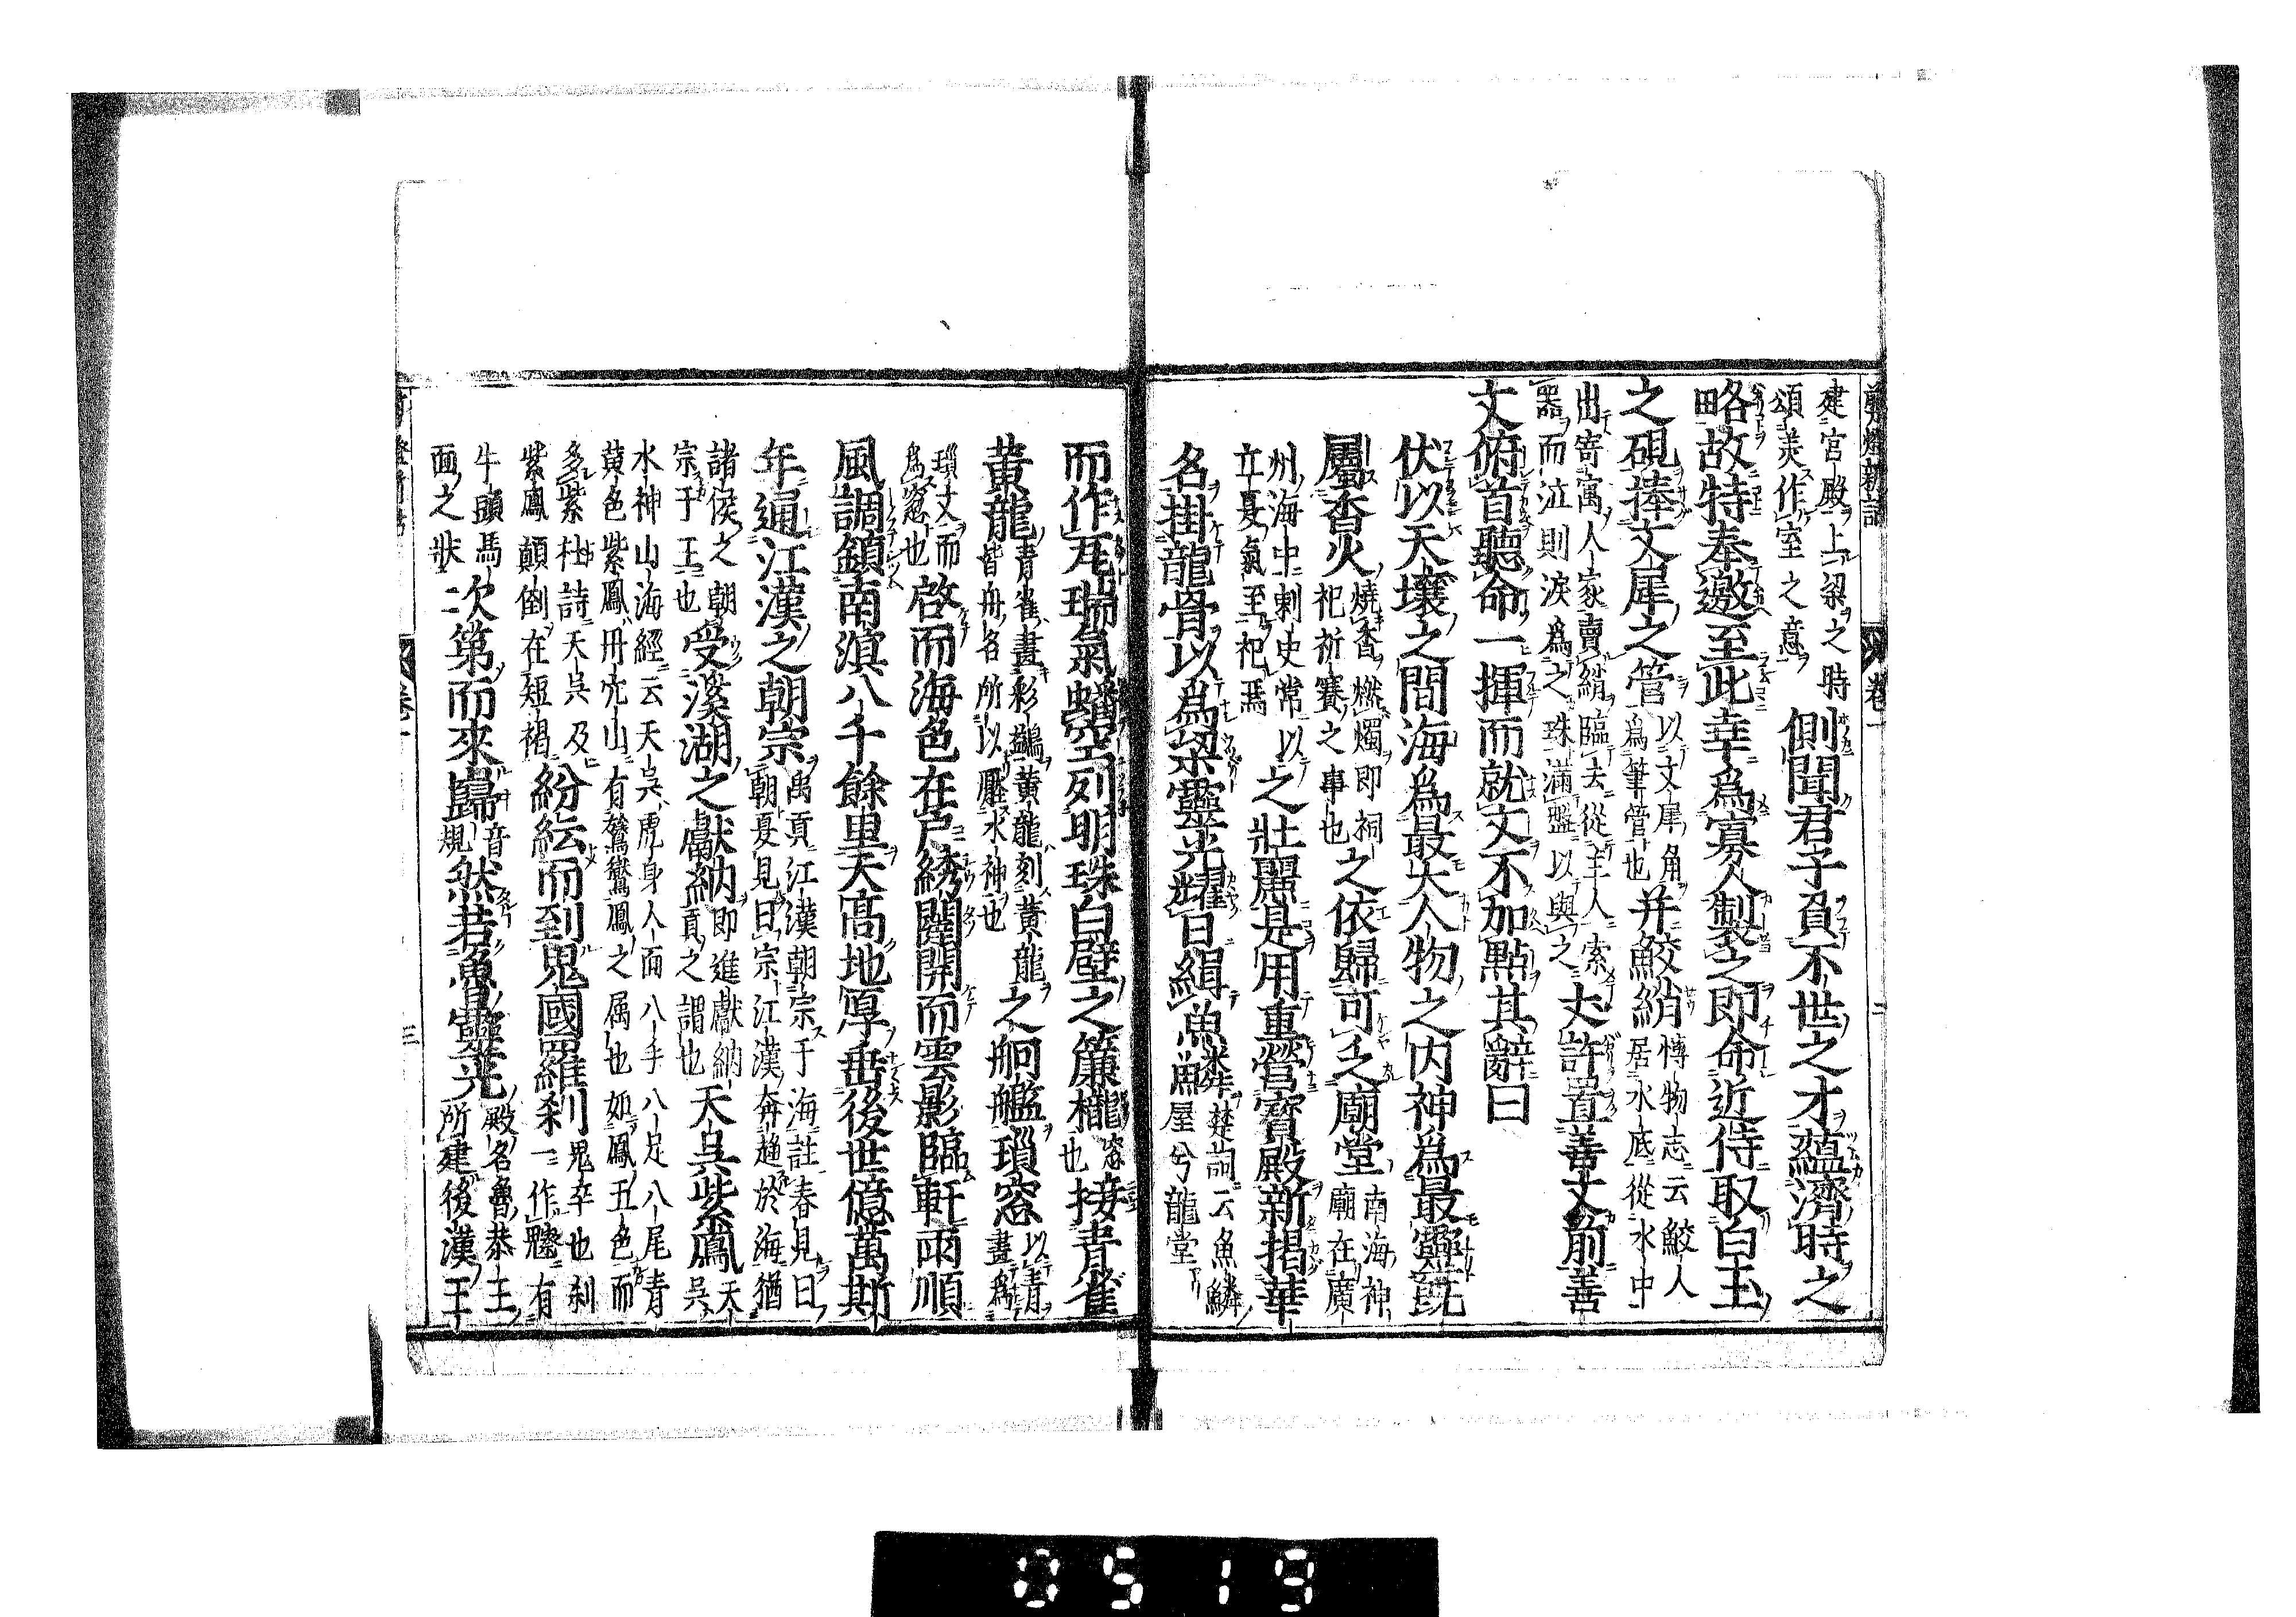 剪燈新話　卷一　二
建宮殿上梁之時
頌美作室之意
側聞君子負不世之才蘊濟時之
略故特奉邀至此幸爲寡人製之即命近侍取白玉
之硯捧文犀之管
以文犀角
爲筆管也
并鮫綃
慱物志云鮫人
居水底從水中
出寄寓人家賣綃臨去從主人索
器而泣則淚爲之珠滿盤以與之
丈許置善文前善
文俯首聽命一揮而就文不加點其辭曰
伏以天壤之間海爲最大人物之內神爲最靈既
屬香火
燒香燃燭即祠
祀祈賽之事也
之依歸可乏廟堂
南海神
廟在廣
州海中刺史常以
立夏氣至祀焉
之壯麗是用重營寶殿新揭華
名掛龍骨以爲梁靈光耀日緝魚鱗
楚詞云魚鱗
屋兮龍堂
而作瓦瑞氣蟠空列明珠白壁之簾櫳
窓
也
接青雀
黃龍
青雀畫彩鷁黃龍刻黃龍
皆舟名所以厭水神也
之舸艦瑣窓
以青
畫爲
瑣文而
爲窓也
啓而海色在戶綉闥開而雲影臨軒雨順
風調鎮南溟八千餘里天高地厚垂後世億萬斯
年通江漢之朝宗
禹貢江漢朝宗于海註春見曰
朝夏見曰宗江漢奔趨於海猶
諸侯之朝
宗于王也
受溪湖之獻納
即進獻納
貢之謂也
天吳紫鳳
天
吳
水神山海經云天吳虎身人面八手八足八尾青
黃色紫鳳丹穴山有鸑鷟鳳之属也如鳳五色而
多紫杜詩天吳及
紫鳳顛倒在短褐
紛紜而到鬼國羅刹
鬼卒也刹
一作魑有
牛頭馬
面之狀
次第而來巋
音
規
然若魯靈光
殿名魯恭王
所建後漢王
卷一　三
0519